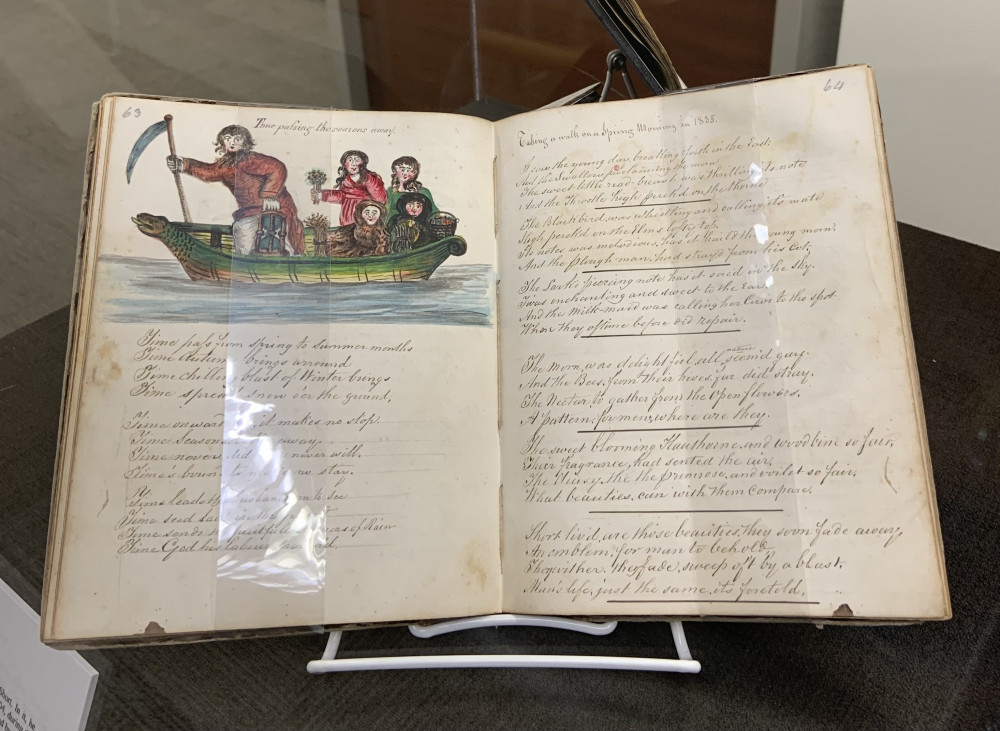 63
Time passing the seasons away.
Time pass from spring to summer months
Time Autumn brings arround
Time chilling blast of Winter brings
Time spreads snow oer the ground,
Time onward it makes no stop.
Time Seasons away
Time never did never will.
Time's bound to stay.
Time leads the see
Time seed
Time sends of Rain
Time God his
64
Taking a walk on a Spring Morning in 1835.
I saw the young day breaking forth in the East,
And the swallows proclaiming the morn
The sweet little read breast was thrilling its note
And the Throstle high perch'd on the thorne
The Blackbird, was whistling and calling its mate
High perched on the Elms lofty top
Its notes was melodious, has it hail'd the young morn,
And the plough man, had stray'd from his Cot,
The Larks piercing note has it soed in the sky.
Twas enchanting and sweet to the Ear
And the milk-maid was calling her Cows to the spot
When they oftime before did repair.
The Morn, was delightfiel, all nature seem'd gay.
And the Bees, from their hives, far did stray.
The Nectar to gather from the Open flowers.
A pattern, for men, where are they.
The sweet blooming Hauthorne, and woodbine so fair,
Their fragrance, had sented the air,
The the the primrose, and voilet so fair,
What beauties, can with them Compare.
Short liv'd, are those beauties, they soon fade away,
An emblem, for man to behold
They wither, they fade, sweep oft by a blast,
Man's life, just the same, its foretold.
Short. In it, he
during